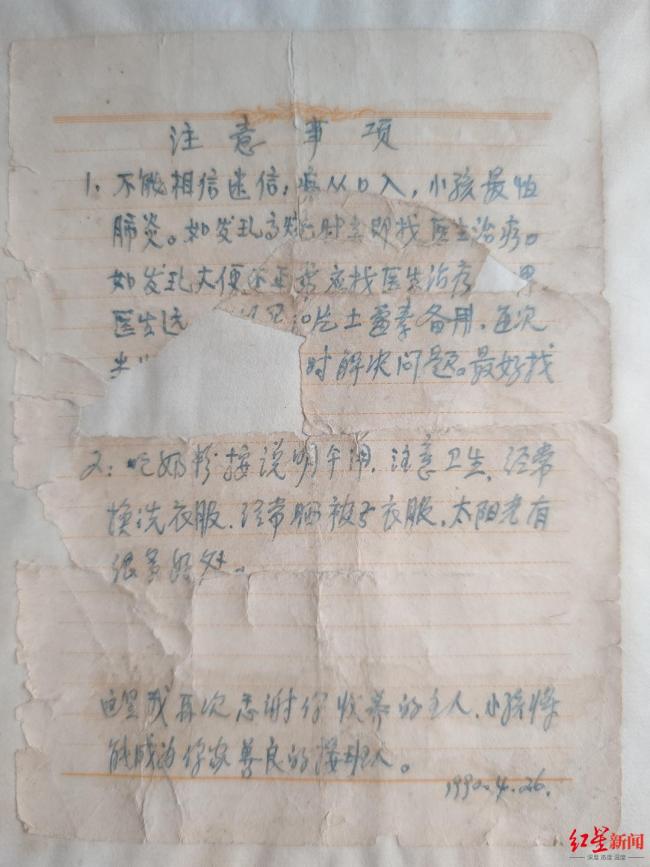 注意事项
1、不能相信迷信，病从口入，小孩最怕
肺炎。如发现高烧时立即找医生治疗。
如发现大便 应找医生治疗 果
医生远 片土霉素备用，每次
时解决问题。最好找
2：吃奶粉按说明午用，注意卫生，经常
换洗衣服，经常晒被子衣服，太阳光有
很多好处。
这里我再次感谢你收养的主人，小孩将
能成为你家善良的接班人。
1990.4.26.
红星新闻
深度 态度 温度